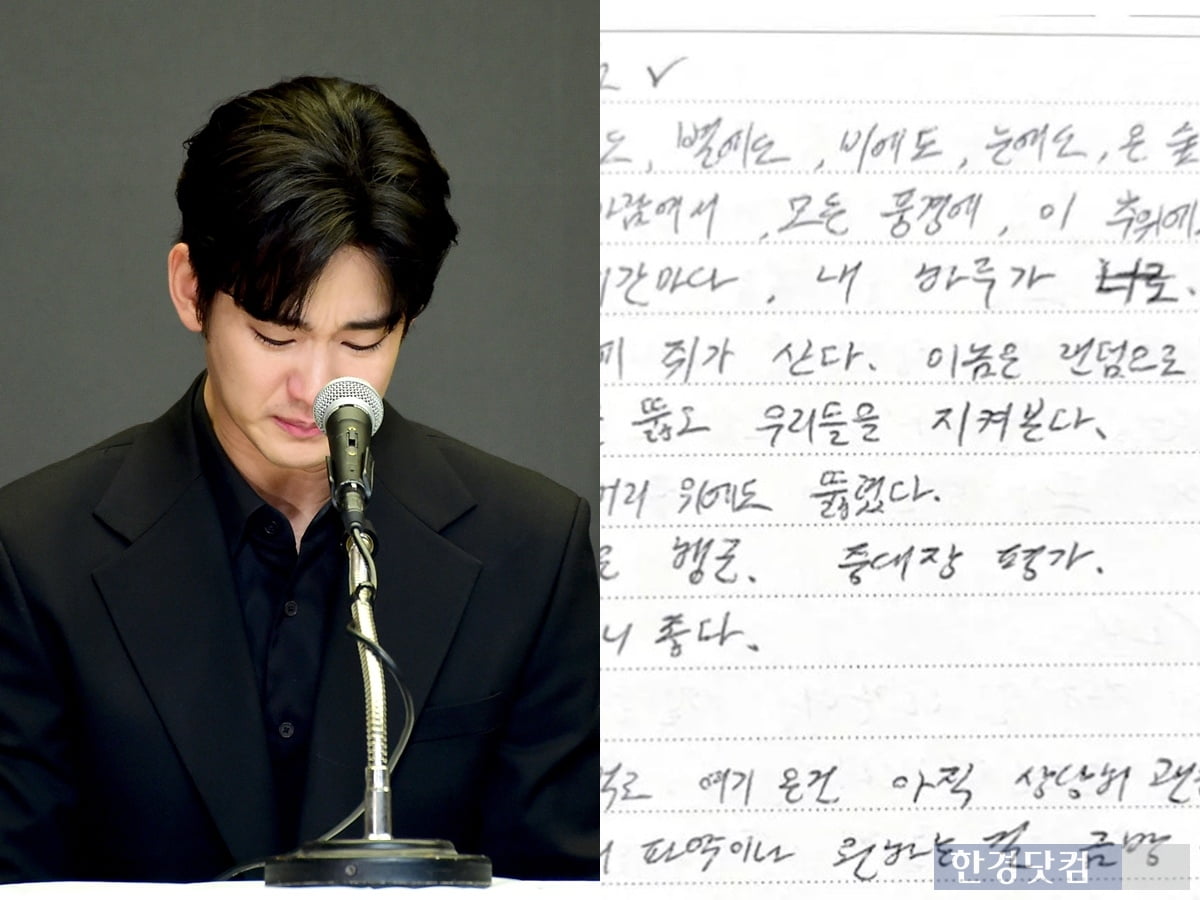 2 ✓
도, 별에도, 비에도, 눈에도, 온 술
사람에서, 모든 풍경에, 이 추위에.
시간마다, 내 하루가 너로.
쥐가 산다. 이놈은 랜덤으로
뚫고 우리들을 지켜본다.
머리 위에도 뚫렸다.
행군. 중대장 평가.
니 좋다.
여기 온건 아직 상당히 괜
파악이나 원하는 걸 금방
한경닷컴